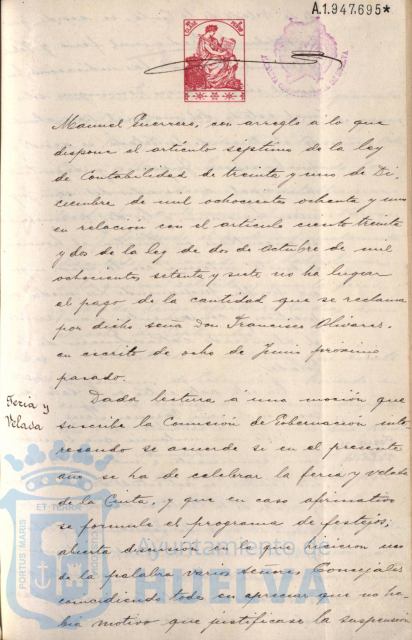 A.1.947.695*
Manuel Guerrero, con arreglo á lo que
dispone el artículo séptimo de la ley
de Contabilidad de treinta y uno de Di-
ciembre de mil ochocientos ochenta y uno
en relacion con el artículo ciento treinta
y dos de la ley de dos de Octubre de mil
ochocientos setenta y siete no ha lugar
el pago de la cantidad que se reclama
por dicho señor Don Francisco Olivares.
en escrito de ocho de Junio próximo
pasado.
Feria y
Velada
Dada lectura á una moción que
suscribe la Comisión de Gobernación inte-
resando se acuerde si en el presente
año se ha de celebrar la feria y velada
de la Cinta, y que en caso afirmativo
se formule el programa de festejos;
abierta discusion en la que hicieron uso
de la palabra varios Señores Concejales
coincidiendo todos en apreciar que no ha-
bia motivo que justificase la suspension
ET TERRÆ
PORTUS MARIS
CUSTODIA
Ayuntamiento de
HUELVA